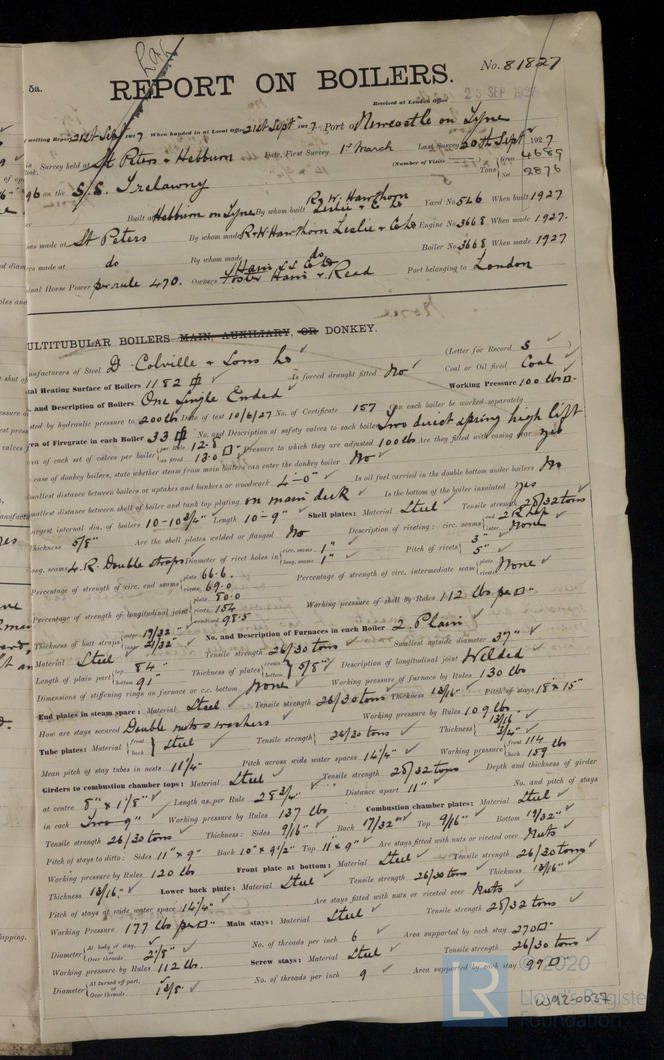 5a.
Rag
REPORT ON BOILERS.
No. 81827
Received at London Office 23 SEP 1927
writing Report 21st Sept 1927 When handed in at Local Office 21st Sept 1927 Port of Newcastle on Tyne
Survey held at St Peters & Hebburn Date, First Survey 1st March Last Survey 20th Sept 1927
(Number of Visits
on the S/S. Trelawny Tons Gross 4689 Net 2876
Built at Hebburn on Tyne By whom built R & W. Hawthorn Leslie & Co Ld Yard No 546 When built 1927
made at St Peters By whom made R & W Hawthorn Leslie & Co Ld Engine No 3668 When made 1927.
made at do By whom made do Boiler No 3668 When made 1927
Horse Power per rule 470. Owners Hain S.S. Co Ld Foster Hain & Read Port belonging to London
MULTITUBULAR BOILERS MAIN, AUXILIARY, OR DONKEY.
Manufacturers of Steel D. Colville & Sons Ld (Letter for Record S)
Total Heating Surface of Boilers 1182 Is forced draught fitted No Coal or Oil fired Coal
and Description of Boilers One Single Ended Working Pressure 100 lbs
tested by hydraulic pressure to 200 lbs Date of test 10/6/27 No. of Certificate 157 Can each boiler be worked separately
Area of Firegrate in each Boiler 33 No. and Description of safety valves to each boiler Two direct spring high lift
Area of each set of valves per boiler per rule 12.8 as fitted 13.0 Pressure to which they are adjusted 100 lbs Are they fitted with easing gear yes
In case of donkey boilers, state whether steam from main boilers can enter the donkey boiler No
Smallest distance between boilers or uptakes and bunkers or woodwork 4'-0" Is oil fuel carried in the double bottom under boilers No
Smallest distance between shell of boiler and tank top plating on main deck Is the bottom of the boiler insulated yes
Largest internal dia. of boilers 10-10 3/4" Length 10-9" Shell plates: Material Steel Tensile strength 28/32 tons
Thickness 5/8" Are the shell plates welded or flanged No Description of riveting: circ. seams end 2 R Lap inter. None
long. seams 4. R. Double straps Diameter of rivet holes in circ. seams 1" long. seams 1" Pitch of rivets 3" 5"
Percentage of strength of circ. end seams plate 66.6. rivets 69.0 Percentage of strength of circ. intermediate seam plate rivets None
Percentage of strength of longitudinal joint plate 80.0 rivets 154 combined 98.5 Working pressure of shell by Rules 112 lbs per
Thickness of butt straps outer 19/32" inner 21/32" No. and Description of Furnaces in each Boiler 2 Plain
Material Steel Tensile strength 26/30 tons Smallest outside diameter 37"
Length of plain part top 84" bottom 91" Thickness of plates crown bottom 5/8" Description of longitudinal joint Welded
Dimensions of stiffening rings on furnace or c.c. bottom None Working pressure of furnace by Rules 130 lbs
End plates in steam space: Material Steel Tensile strength 26/30 tons Thickness 13/16" Pitch of stays 18" x 15"
How are stays secured Double nuts & washers Working pressure by Rules 109 lbs
Tube plates: Material front back Steel Tensile strength 26/30 tons Thickness 13/16" 3/4"
Mean pitch of stay tubes in nests 11 1/4" Pitch across wide water spaces 14 1/4" Working pressure front 114 back 159 lbs
Girders to combustion chamber tops: Material Steel Tensile strength 28/32 tons Depth and thickness of girder
at centre 8" x 1 1/8" Length as per Rule 28 3/4" Distance apart 11" No. and pitch of stays
in each Two 9" Working pressure by Rules 137 lbs Combustion chamber plates: Material Steel
Tensile strength 26/30 tons Thickness: Sides 9/16" Back 17/32" Top 9/16" Bottom 19/32"
Pitch of stays to ditto: Sides 11" x 9" Back 10" x 9 1/2" Top 11" x 9" Are stays fitted with nuts or riveted over Nuts
Working pressure by Rules 120 lbs Front plate at bottom: Material Steel Tensile strength 26/30 tons
Thickness 13/16" Lower back plate: Material Steel Tensile strength 26/30 tons Thickness 13/16"
Pitch of stays at wide water space 14 1/4" Are stays fitted with nuts or riveted over Nuts
Working Pressure 177 lbs per Main stays: Material Steel Tensile strength 28/32 tons
Diameter At body of stay, or Over threads 2 5/8" No. of threads per inch 6 Area supported by each stay 270
Working pressure by Rules 112 lbs. Screw stays: Material Steel Tensile strength 26/30 tons
Diameter At turned off part, or Over threads 1 3/8" No. of threads per inch 9 Area supported by each stay 99
© 2020
LR Lloyd's Register Foundation
W392-0037